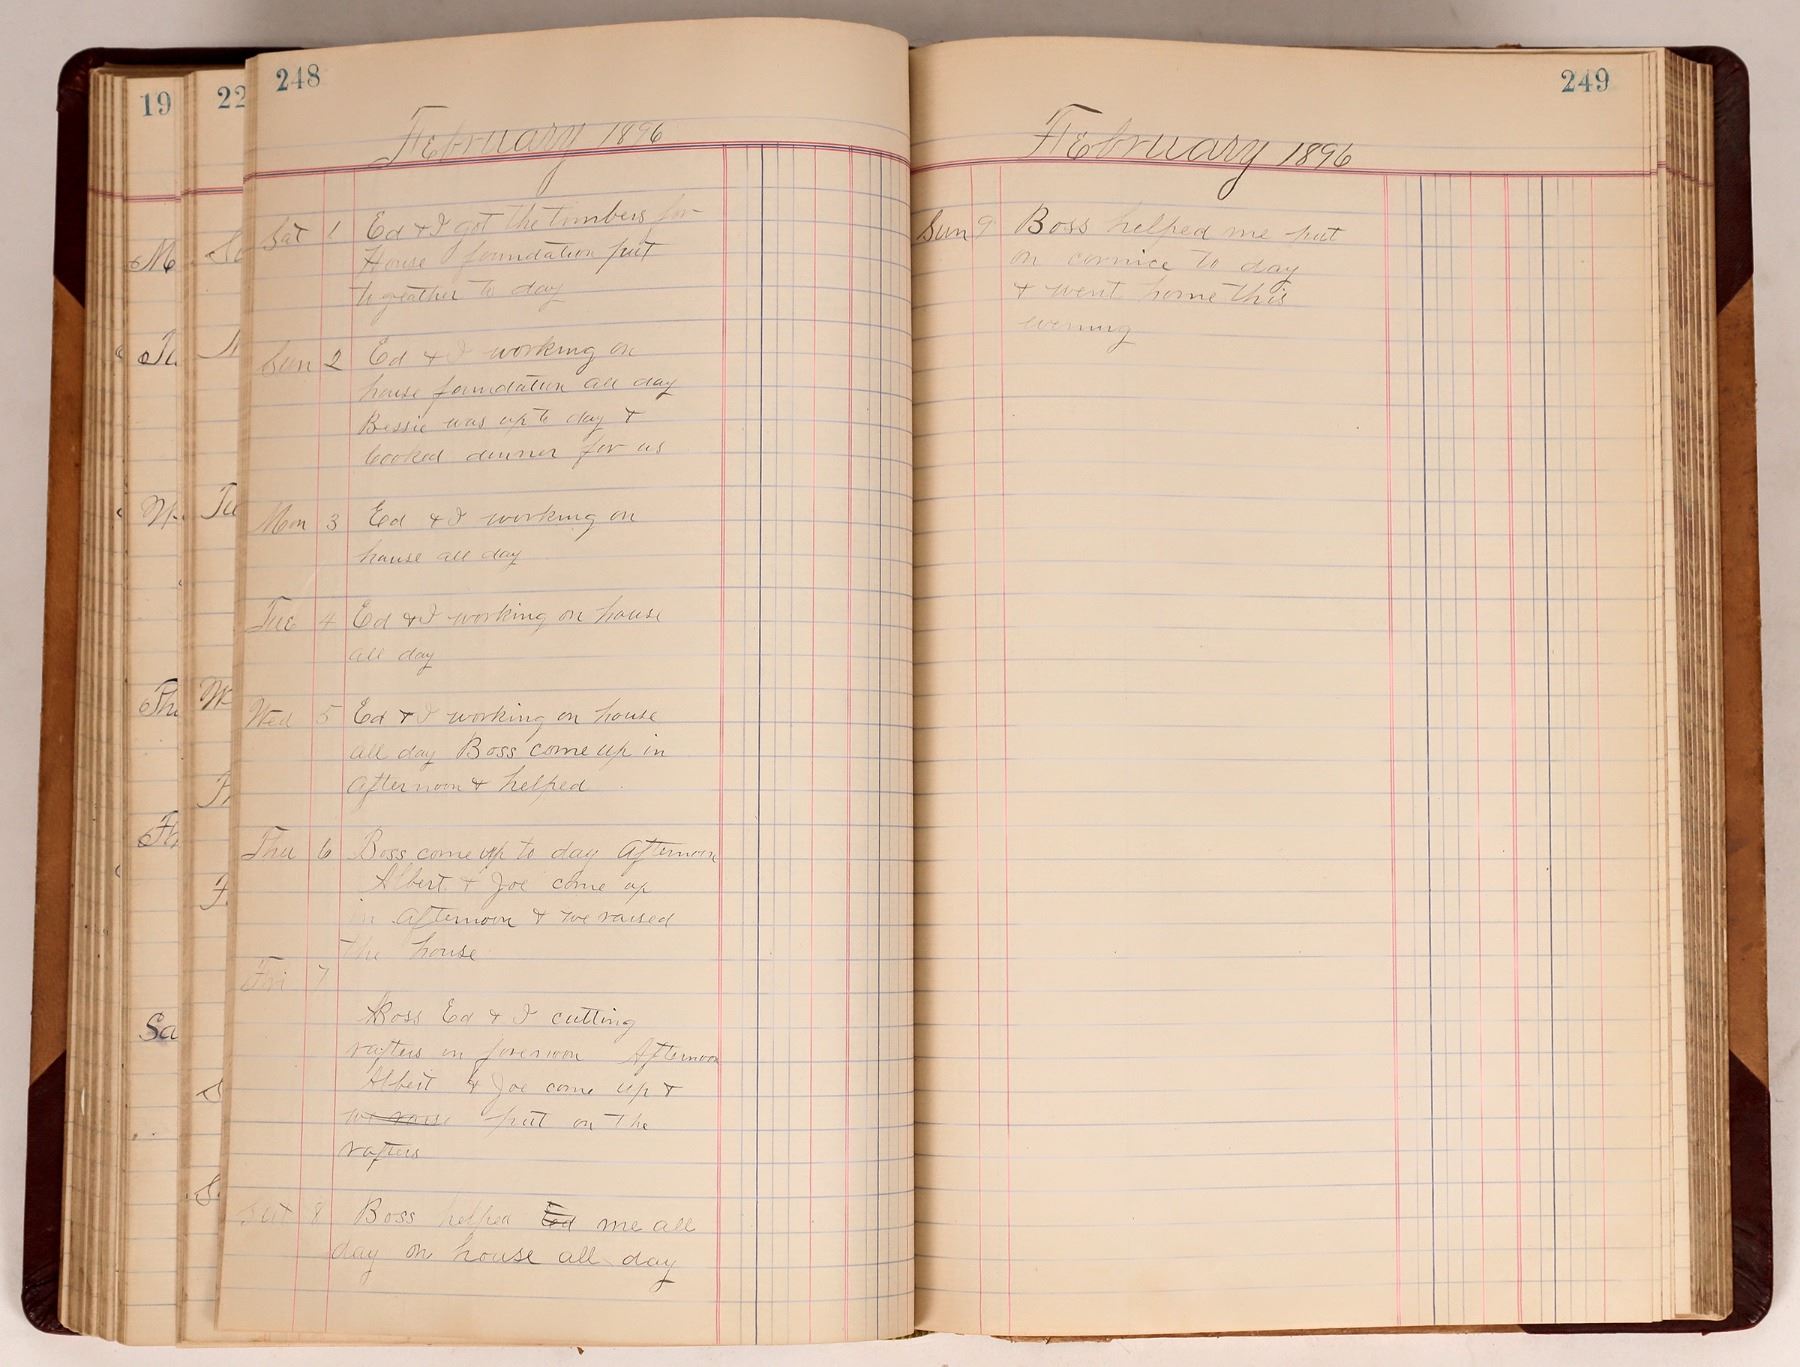 19
22
248
February 1896
Sat 1 Ed & I got the timbers for
House foundation put
togeather to day
Sun 2 Ed & I working on
house foundation all day
Bessie was up to day &
cooked dinner for us
Mon 3 Ed & I working on
house all day
Tue 4 Ed & I working on house
all day
Wed 5 Ed & I working on house
all day Boss come up in
afternoon & helped
Thu 6 Boss come up to day Afternoon
Albert & Joe come up
in Afternoon & we raised
the house
Fri 7
Boss Ed & I cutting
rafters in forenoon Afternoon
Albert & Joe come up &
we raise put on the
rafters
Sat 8 Boss helped Ed me all
day on house all day
249
February 1896
Sun 9 Boss helped me put
on cornice to day
& went home this
evening
M
Tu
Thu
Sa
Tu